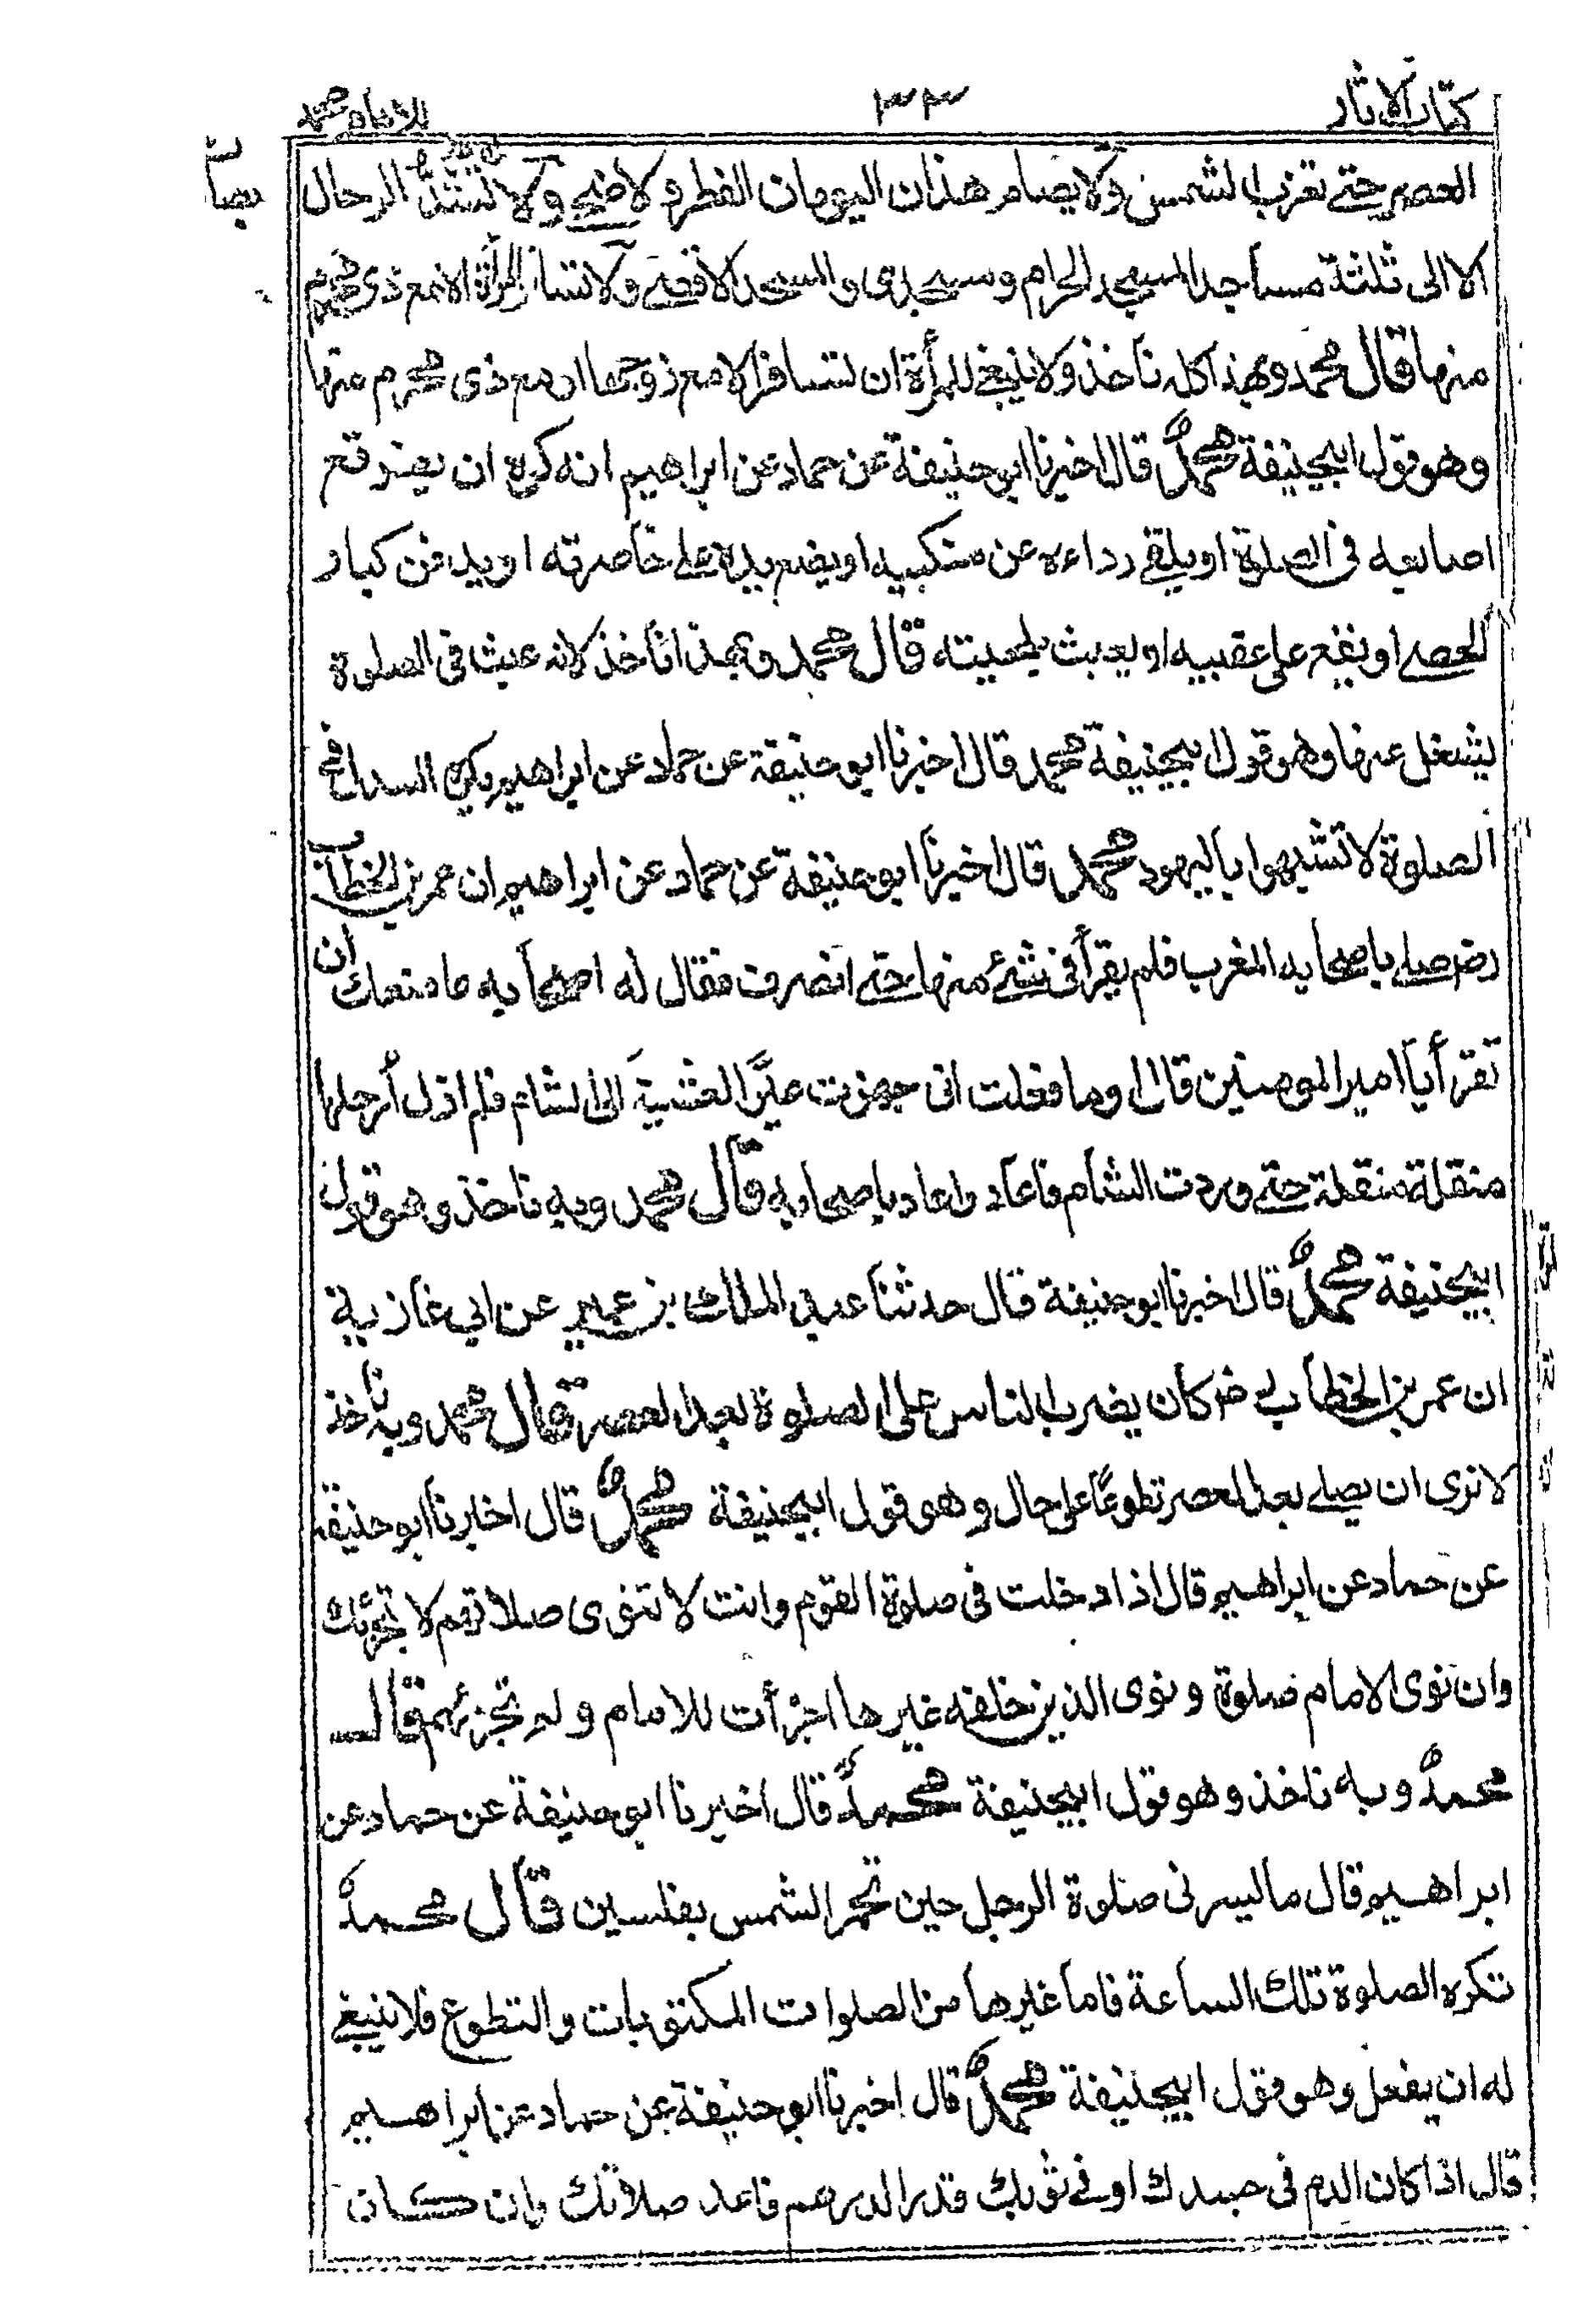 كتاب الاثار ٣٣ للامام محمد
العصر حتے تغرب الشمس ولا يصام هذان اليومان الفطر والاضحے ولا تشد الرحال
الا الى ثلثة مساجد المسجد الحرام ومسجدى والمسجد الاقصے ولا تسافر المرأة الا مع ذى محرم
منها قال محمد وبهذا كله ناخذ ولا ينبغے للمرأة ان تسافر الا مع زوجها او مع ذى محرم منها
وهو قول ابيحنيفة محمدٌ قال اخبرنا ابو حنيفة عن حماد عن ابراهيم انه كره ان يفرقع
اصابعه فى الصلوة او يلقے رداءه عن منكبيه او يضع يده علے خاصرته او يدفن كبار
الحصے او يقع على عقبيه او يعبث بلحيته قال محمد وبهذا ناخذ لانه عبث فى الصلوة
يشغل عنها وهو قول ابيحنيفة محمد قال اخبرنا ابو حنيفة عن حماد عن ابراهيم يكره السدل فى
الصلوة لا تشبهوا باليهود محمد قال اخبرنا ابو حنيفة عن حماد عن ابراهيم ان عمر بن الخطاب
رضـ صلے باصحابه المغرب فلم يقرأ فى شئ منها حتے انصرف فقال له اصحابه ما منعك ان
تقرأ يا امير المومنين قال او ما فعلت انى جهزت عيرًا العشية الى الشام فلم ازل أرحلها
منقلة منقلة حتے وردت الشام فاعاد واعاد باصحابه قال محمد وبه ناخذ وهو قول
ابيحنيفة محمدٌ قال اخبرنا ابو حنيفة قال حدثنا عبد الملك بن عمير عن ابي غازية
ان عمر بن الخطاب رضـ كان يضرب الناس على الصلوة بعد العصر قال محمد وبه ناخذ
لا نرى ان يصلے بعد العصر تطوعًا على حال وهو قول ابيحنيفة محمدٌ قال اخبرنا ابو حنيفة
عن حماد عن ابراهيم قال اذا دخلت فى صلوة القوم وانت لا تنوى صلاتهم لا تجزئك
وان نوى الامام صلوة ونوى الذين خلفه غيرها اجزأت للامام ولم تجزئهم قال
محمدٌ وبه ناخذ وهو قول ابيحنيفة محمدٌ قال اخبرنا ابو حنيفة عن حماد عن
ابراهيم قال ما يسرنى صلوة الرجل حين تحمر الشمس بفلسين قال محمدٌ
تكره الصلوة تلك الساعة فاما غيرها من الصلوات المكتوبات والتطوع فلا ينبغے
له ان يفعل وهو قول ابيحنيفة محمدٌ قال اخبرنا ابو حنيفة عن حماد عن ابراهيم
قال اذا كان الدم فى جسدك او فے ثوبك قدر الدرهم فاعد صلاتك وان كان